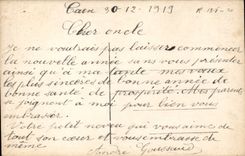 Caen 30-12-1919
Cher oncle
Je ne voudrais pas laisser commencer
la nouvelle année sans vous présenter
ainsi qu'à ma tante mes vœux
les plus sincères de bonne année de
bonne santé de prospérité. Mes parents
se joignent à moi pour bien vous
embrasser.
Votre petit neveu qui vous aime de
tout son cœur et vous embrasse de
même
André